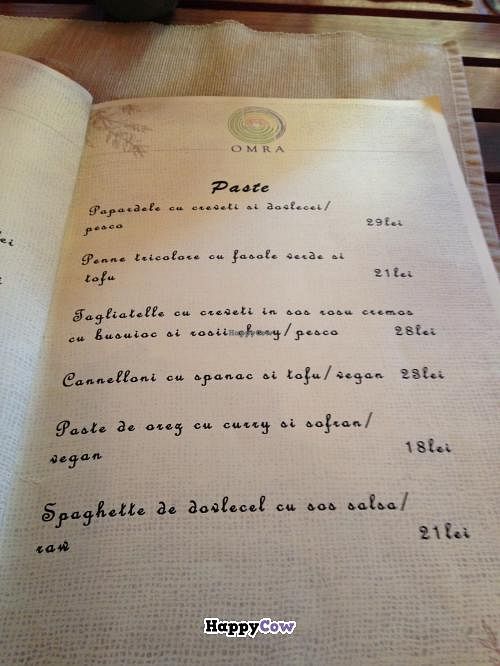 OMRA
Paste
Papardele cu creveti si dovlecei/
pesco 29lei
Penne tricolore cu fasole verde si
tofu 21lei
Tagliatelle cu creveti in sos rosu cremos
cu busuioc si rosii /pesco 28lei
HappyCow
Cannelloni cu spanac si tofu/vegan 23lei
Paste de orez cu curry si sofran/
vegan 18lei
Spaghette de dovlecel cu sos salsa/
raw 21lei
HappyCow